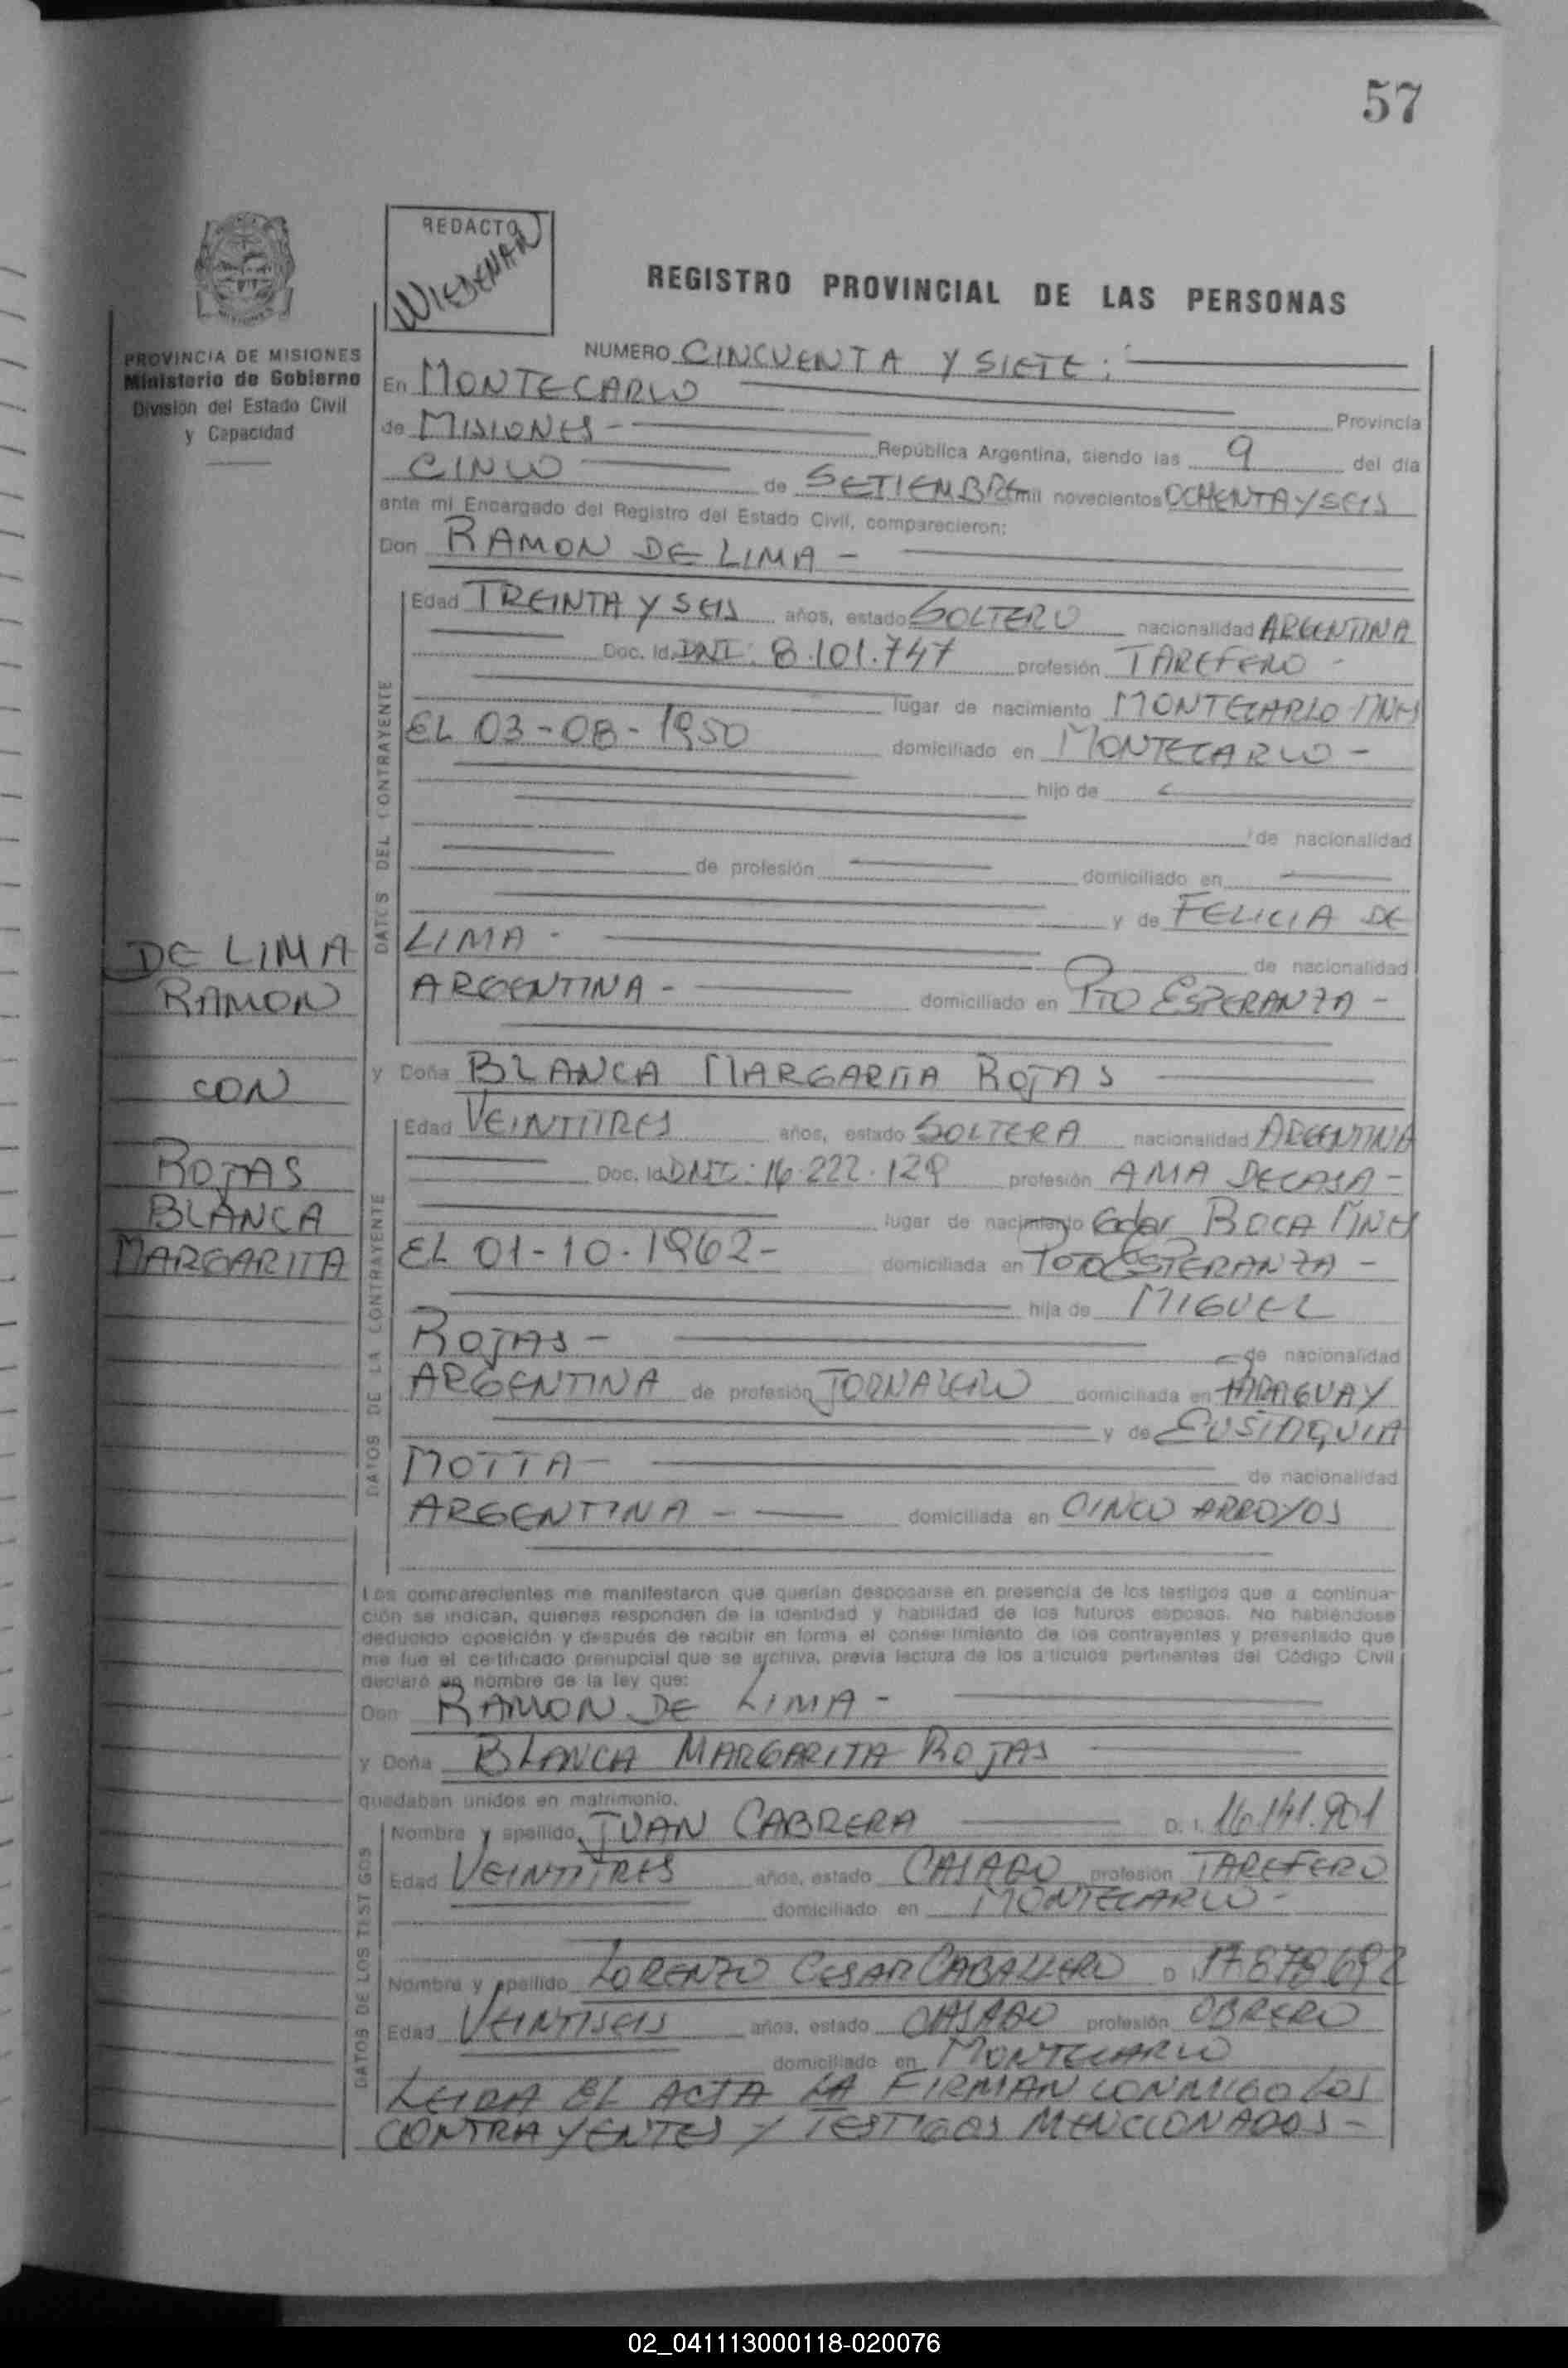 57
REDACTO
WIESENAN
REGISTRO PROVINCIAL DE LAS PERSONAS
PROVINCIA DE MISIONES
Ministerio de Gobierno
División del Estado Civil
y Capacidad
NUMERO CINCUENTA Y SIETE:
En MONTECARLO
Provincia
de MISIONES - República Argentina, siendo las 9 del día
CINCO de SETIEMBRE mil novecientos OCHENTA Y SEIS
ante mi Encargado del Registro del Estado Civil, comparecieron:
Don RAMON DE LIMA -
DATOS DEL CONTRAYENTE
Edad TREINTA Y SEIS años, estado SOLTERO nacionalidad ARGENTINA
Doc. Id. DNI: 8.101.747 profesión TAREFERO -
lugar de nacimiento MONTECARLO MNES
EL 03-08-1950 domiciliado en MONTECARLO -
hijo de
de nacionalidad
de profesión domiciliado en
y de FELICIA DE
LIMA - de nacionalidad
ARGENTINA - domiciliado en PTO ESPERANZA -
DE LIMA
RAMON
CON
ROJAS
BLANCA
MARGARITA
y Doña BLANCA MARGARITA ROJAS
DATOS DE LA CONTRAYENTE
Edad VEINTITRES años, estado SOLTERA nacionalidad ARGENTINA
Doc. Id. DNI: 16.222.129 profesión AMA DE CASA -
lugar de nacimiento BOCA MNES
EL 01-10-1962 - domiciliada en PTO ESPERANZA -
hija de MIGUEL
ROJAS - de nacionalidad
ARGENTINA de profesión JORNALERO domiciliada en PARAGUAY
y de EUSTAQUIA
MOTTA - de nacionalidad
ARGENTINA - domiciliada en CINCO ARROYOS
Los comparecientes me manifestaron que querían desposarse en presencia de los testigos que a continua-
ción se indican, quienes responden de la identidad y habilidad de los futuros esposos. No habiéndose
deducido oposición y después de recibir en forma el consentimiento de los contrayentes y presentado que
me fue el certificado prenupcial que se archiva, previa lectura de los artículos pertinentes del Código Civil
declaré en nombre de la ley que:
Don RAMON DE LIMA -
y Doña BLANCA MARGARITA ROJAS
quedaban unidos en matrimonio.
DATOS DE LOS TESTIGOS
Nombre y apellido JUAN CABRERA D. I. 16.141.901
Edad VEINTITRES años, estado CASADO profesión TAREFERO
domiciliado en MONTECARLO -
Nombre y apellido LORENZO CESAR CABALLERO D. I. 17.878.692
Edad VEINTISEIS años, estado CASADO profesión OBRERO
domiciliado en MONTECARLO
LEIDA EL ACTA LA FIRMAN CONMIGO LOS
CONTRAYENTES Y TESTIGOS MENCIONADOS -
02_041113000118-020076